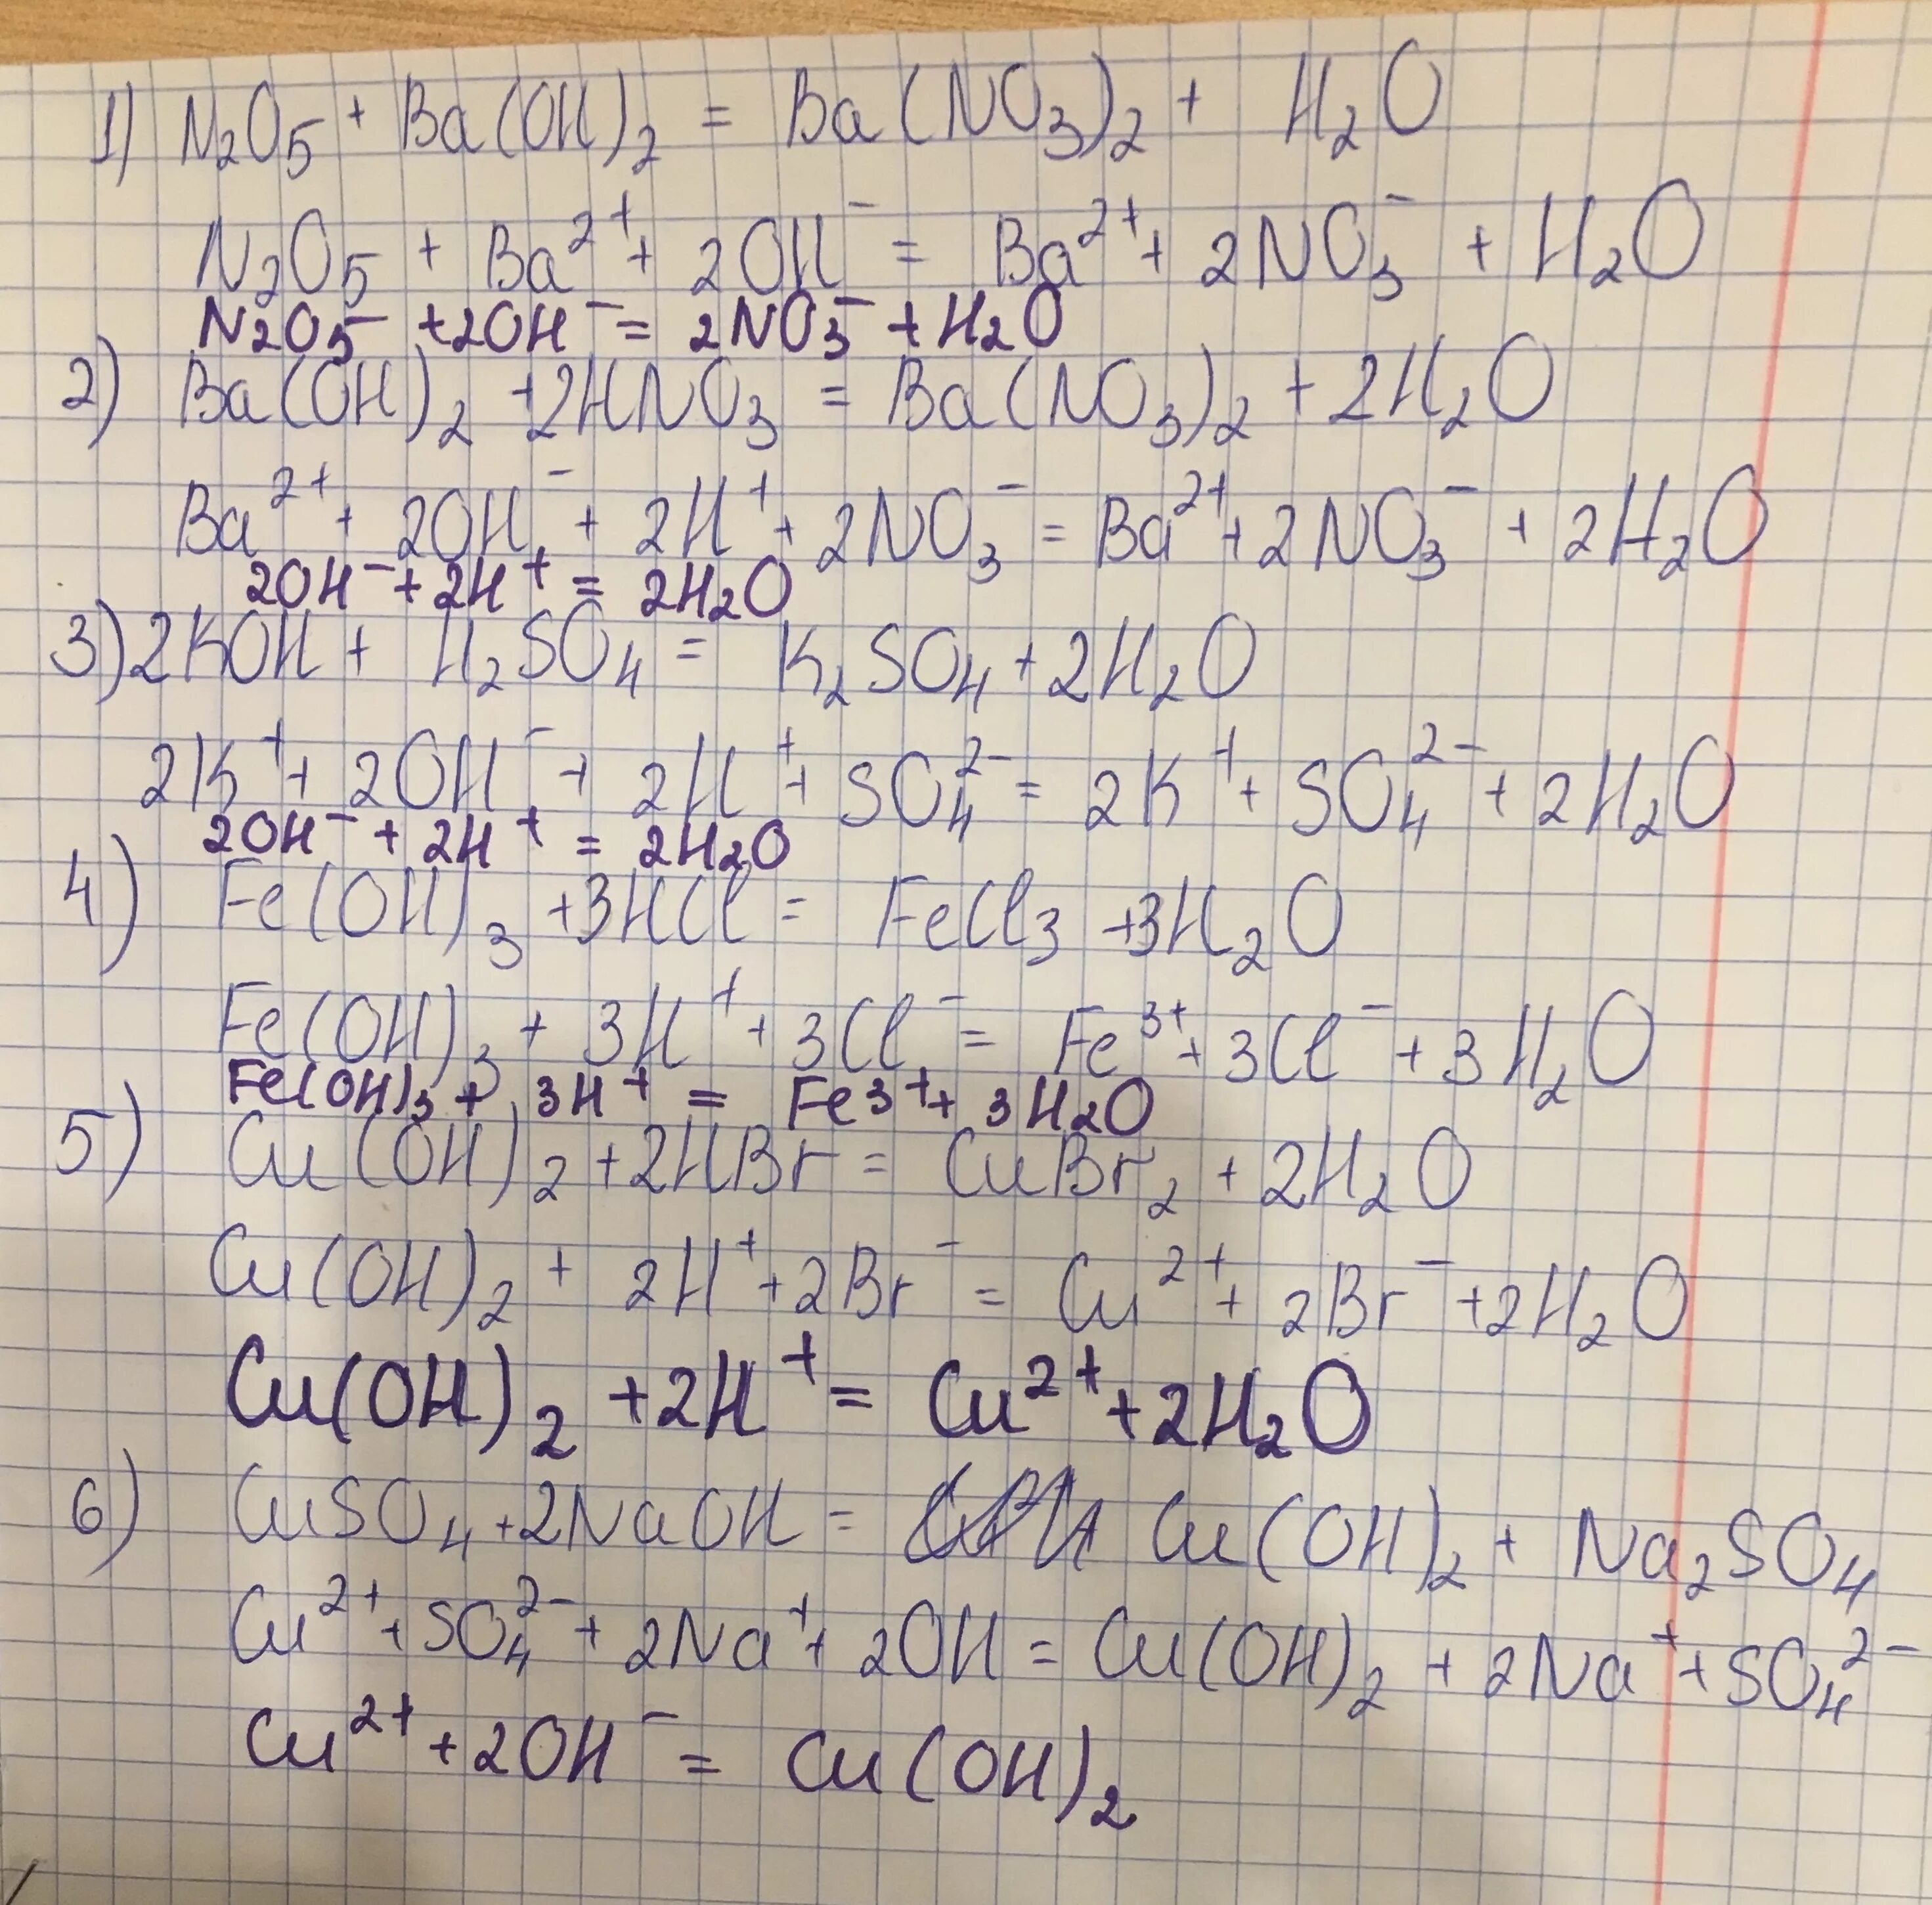 1) N₂O₅ + Ba(OH)₂ = Ba(NO₃)₂ + H₂O
N₂O₅ + Ba²⁺ + 2OH⁻ = Ba²⁺ + 2NO₃⁻ + H₂O
N₂O₅ + 2OH⁻ = 2NO₃⁻ + H₂O
2) Ba(OH)₂ + 2HNO₃ = Ba(NO₃)₂ + 2H₂O
Ba²⁺ + 2OH⁻ + 2H⁺ + 2NO₃⁻ = Ba²⁺ + 2NO₃⁻ + 2H₂O
2OH⁻ + 2H⁺ = 2H₂O
3) 2KOH + H₂SO₄ = K₂SO₄ + 2H₂O
2K⁺ + 2OH⁻ + 2H⁺ + SO₄²⁻ = 2K⁺ + SO₄²⁻ + 2H₂O
2OH⁻ + 2H⁺ = 2H₂O
4) Fe(OH)₃ + 3HCl = FeCl₃ + 3H₂O
Fe(OH)₃ + 3H⁺ + 3Cl⁻ = Fe³⁺ + 3Cl⁻ + 3H₂O
Fe(OH)₃ + 3H⁺ = Fe³⁺ + 3H₂O
5) Cu(OH)₂ + 2HBr = CuBr₂ + 2H₂O
Cu(OH)₂ + 2H⁺ + 2Br⁻ = Cu²⁺ + 2Br⁻ + 2H₂O
Cu(OH)₂ + 2H⁺ = Cu²⁺ + 2H₂O
6) CuSO₄ + 2NaOH = Cu(OH)₂ + Na₂SO₄
Cu²⁺ + SO₄²⁻ + 2Na⁺ + 2OH = Cu(OH)₂ + 2Na⁺ + SO₄²⁻
Cu²⁺ + 2OH⁻ = Cu(OH)₂